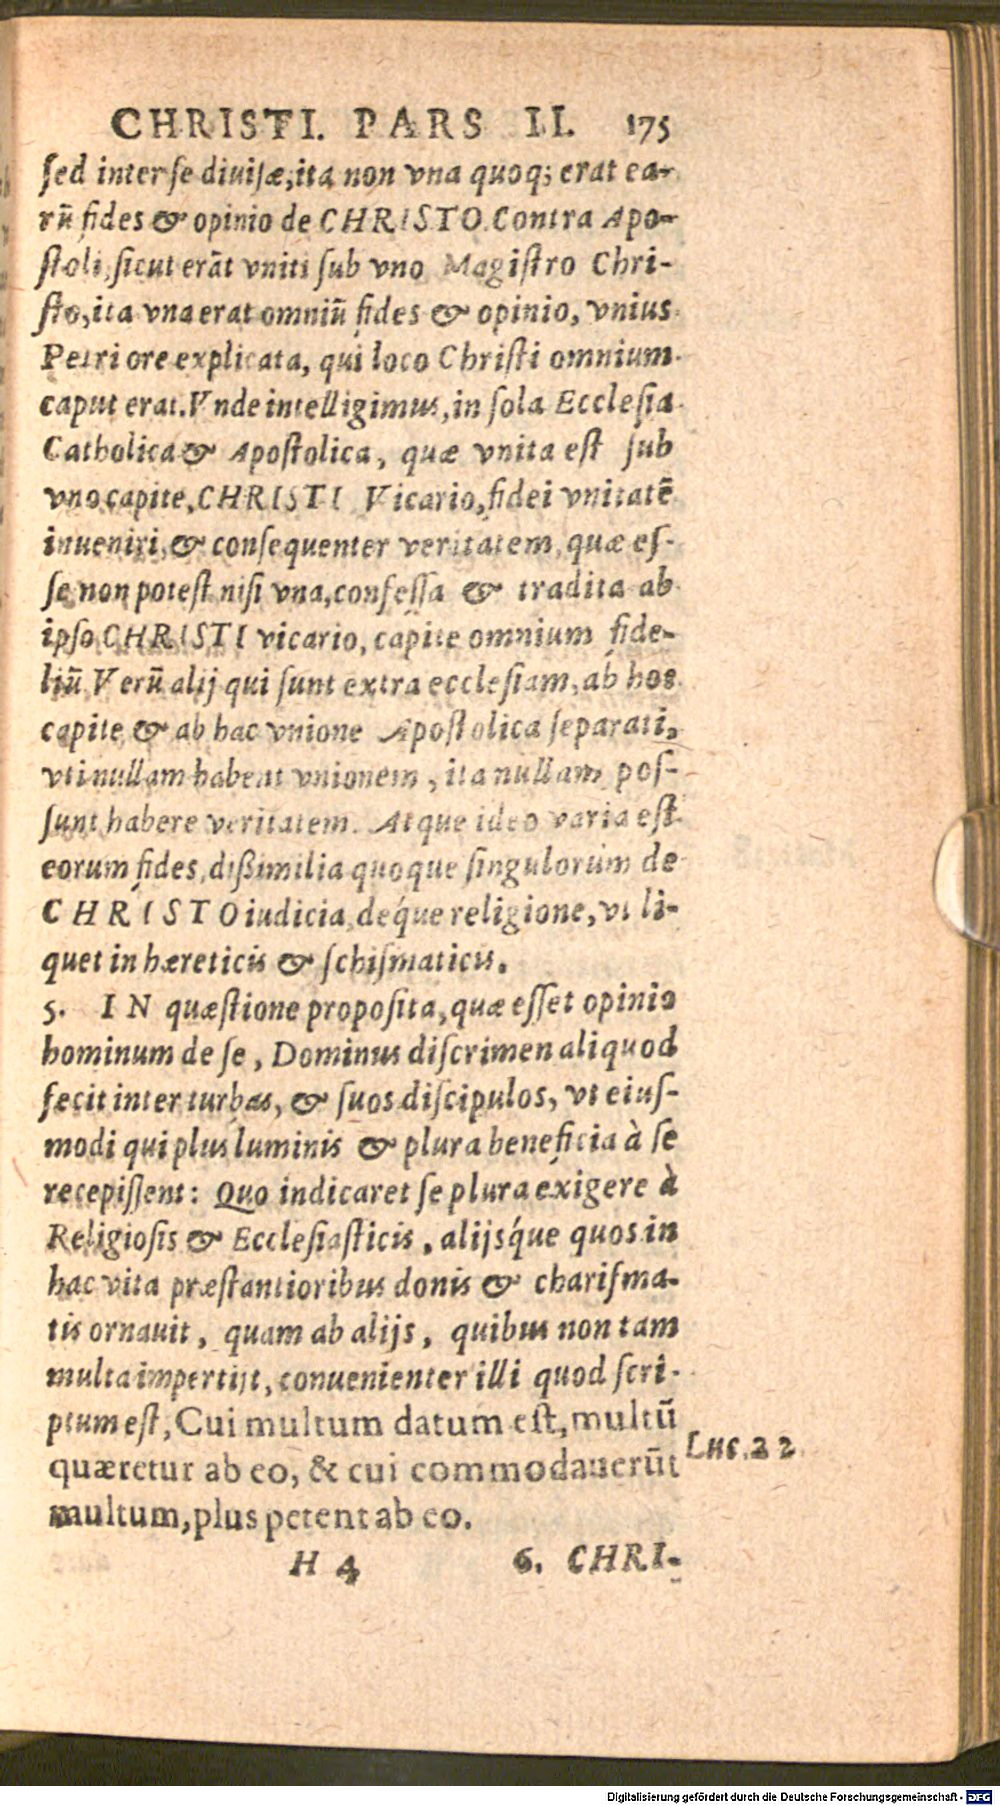 CHRISTI. PARS II. 175
ſed inter ſe diuiſæ, ita non vna quoq; erat ea-
rũ fides & opinio de CHRISTO. Contra Apo-
ſtoli, ſicut erãt vniti ſub vno Magiſtro Chri-
ſto, ita vna erat omniũ fides & opinio, vnius
Petri ore explicata, qui loco Chriſti omnium
caput erat. Vnde intelligimus, in ſola Eccleſia
Catholica & Apoſtolica, quæ vnita eſt ſub
vno capite, CHRISTI Vicario, fidei vnitatẽ
inueniri, & conſequenter veritatem, quæ eſ-
ſe non poteſt niſi vna, confeſſa & tradita ab
ipſo CHRISTI vicario, capite omnium fide-
liũ. Verũ alij qui ſunt extra eccleſiam, ab hoc
capite & ab hac vnione Apoſtolica ſeparati,
vti nullam habent vnionem, ita nullam poſ-
ſunt habere veritatem. Atque ideo varia eſt
eorum fides, dißimilia quoque ſingulorum de
CHRISTO iudicia, deq́ue religione, vt li-
quet in hæreticis & ſchiſmaticis.
5. IN quæſtione propoſita, quæ eſſet opinio
hominum de ſe, Dominus diſcrimen aliquod
fecit inter turbas, & ſuos diſcipulos, vt eiuſ-
modi qui plus luminis & plura beneficia à ſe
recepiſſent: Quo indicaret ſe plura exigere à
Religioſis & Eccleſiaſticis, alijsq́ue quos in
hac vita præſtantioribus donis & chariſma-
tis ornauit, quam ab alijs, quibus non tam
multa impertijt, conuenienter illi quod ſcri-
ptum eſt, Cui multum datum eſt, multũ
quæretur ab eo, & cui commodauerũt
multum, plus petent ab eo.
Luc. 22
H 4 6. CHRI-
Digitalisierung gefördert durch die Deutsche Forschungsgemeinschaft - DFG